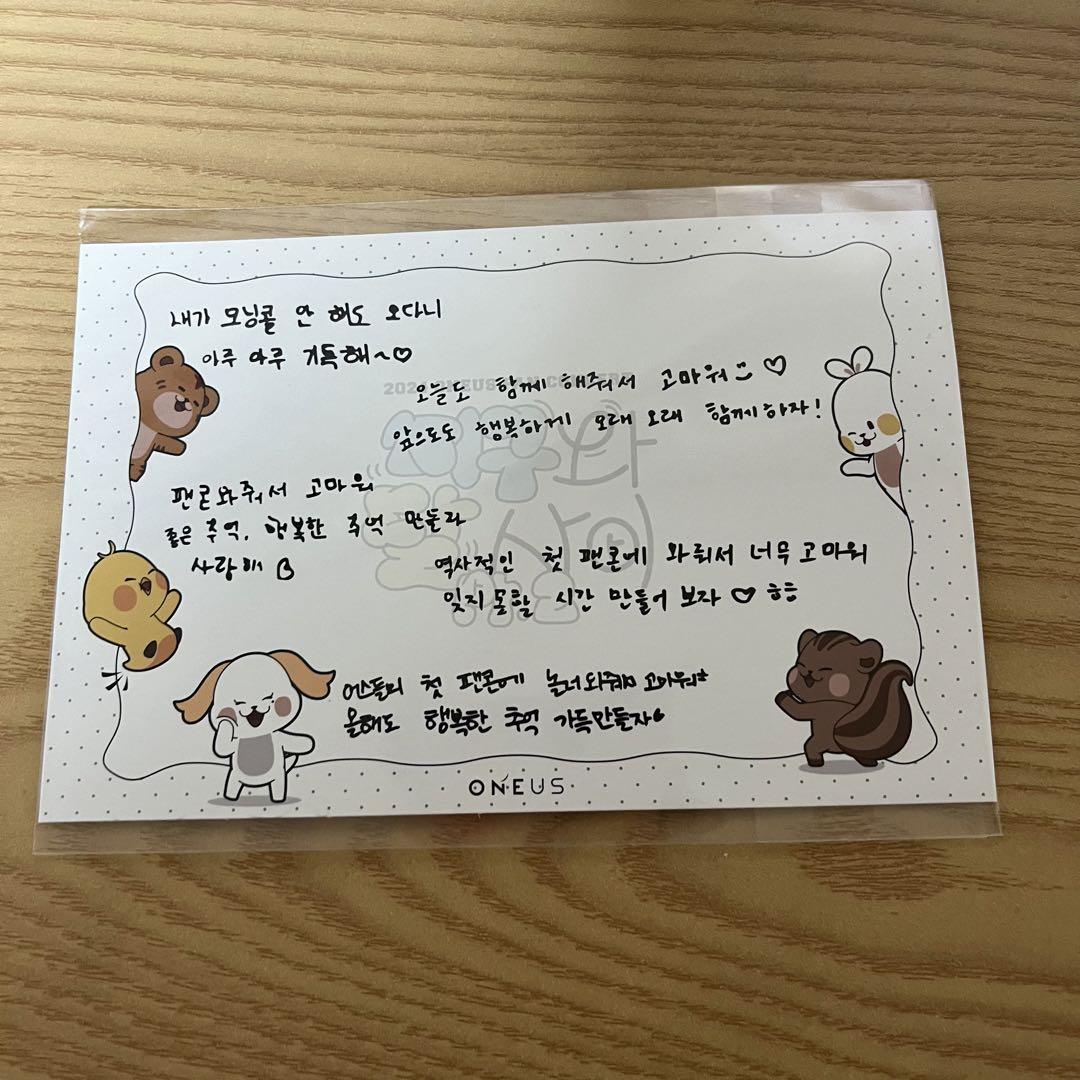 내가 모닝콜 안 해도 오다니
아주 아주 기특해~♡
오늘도 함께 해줘서 고마워 ♡
앞으로도 행복하게 오래 오래 함께하자!
팬콘와줘서 고마워
좋은 추억, 행복한 추억 만들자
사랑해 ♡
역사적인 첫 팬콘에 와줘서 너무 고마워
잊지못할 시간 만들어 보자 ♡ ㅎㅎ
어스들의 첫 팬콘에 놀러와줘서 고마워
올해도 행복한 추억 가득만들자
ONEUS